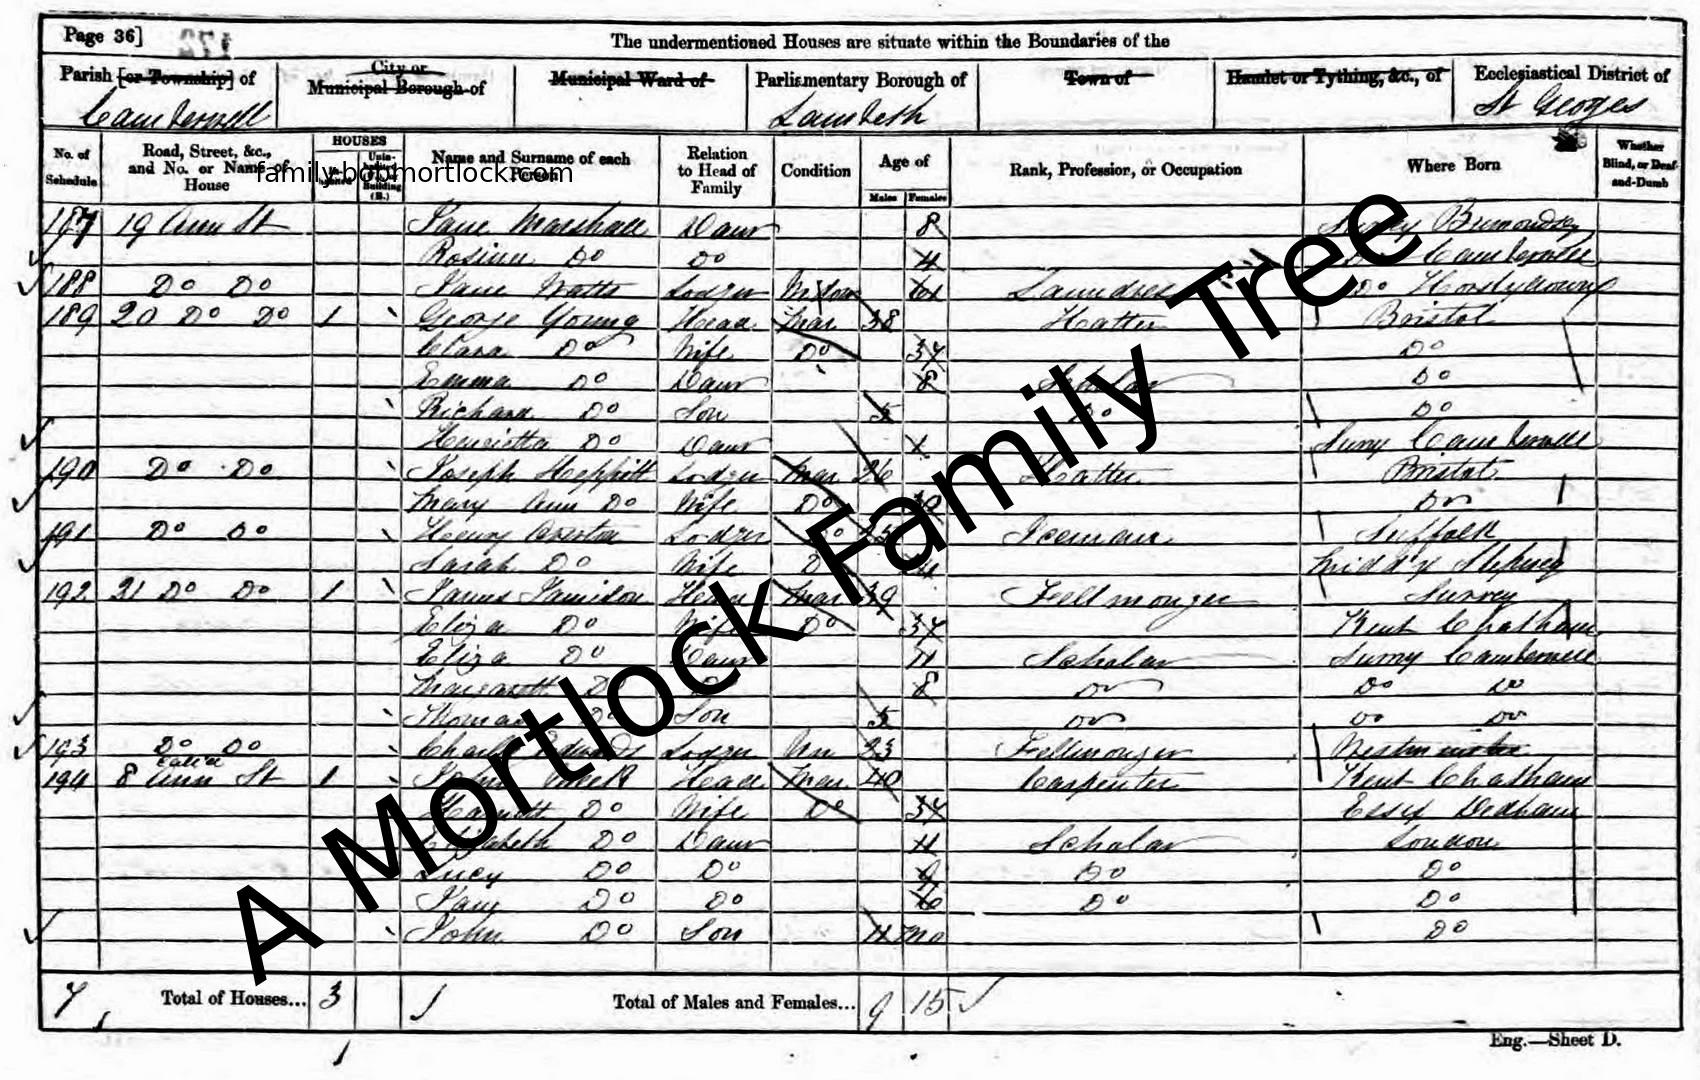 Page 36]
The undermentioned Houses are situate within the Boundaries of the
Parish [or Township] of Camberwell
City or Municipal Borough of
Municipal Ward of
Parliamentary Borough of Lambeth
Town of
Hamlet or Tything, &c., of
Ecclesiastical District of St Georges
No. of Schedule
Road, Street, &c., and No. or Name of House
HOUSES
Name and Surname of each Person
Relation to Head of Family
Condition
Age of
Males
Females
Rank, Profession, or Occupation
Where Born
Whether Blind, or Deaf-and-Dumb
family.bobmortlock.com
187 19 Ann St Jane Marshall Daur 8 Surrey
Rosina Do Do 4 Camberwell
188 Do Do Jane Watts Lodger Widow Laundress Do
189 20 Do Do 1 George Young Head Mar 38 Hatter Bristol
Clara Do Wife Do 37 Do
Emma Do Daur 8 Scholar Do
Richard Do Son 5 Do Do
Henrietta Do Daur Surry Camberwell
190 Do Do Joseph Lodger Mar 26 Hatter Bristol
Mary Ann Do Wife Do Do
191 Do Do Henry Lodger Do 25 Iceman Suffolk
Sarah Do Wife Midd'x Stepney
192 21 Do Do 1 James Jamison Head Mar 39 Fellmonger Surrey
Eliza Do Wife Do 37 Kent Chatham
Eliza Do Daur 11 Scholar Surry Camberwell
Margarett Do Do 8 Do Do Do
Thomas Do Son 5 Do Do Do
193 Do Do Charles Edwards Lodger Un 23 Fellmonger Westminster
194 8 Ann St 1 John Head Mar 40 Carpenter Kent Chatham
Harriett Do Wife Do 37 Essex Dedham
Elizabeth Do Daur 11 Scholar London
Lucy Do Do 9 Do Do
Jane Do Do 6 Do Do
John Do Son 11 Mo Do
A Mortlock Family Tree
7 Total of Houses... 3 Total of Males and Females... 9 15
Eng.—Sheet D.